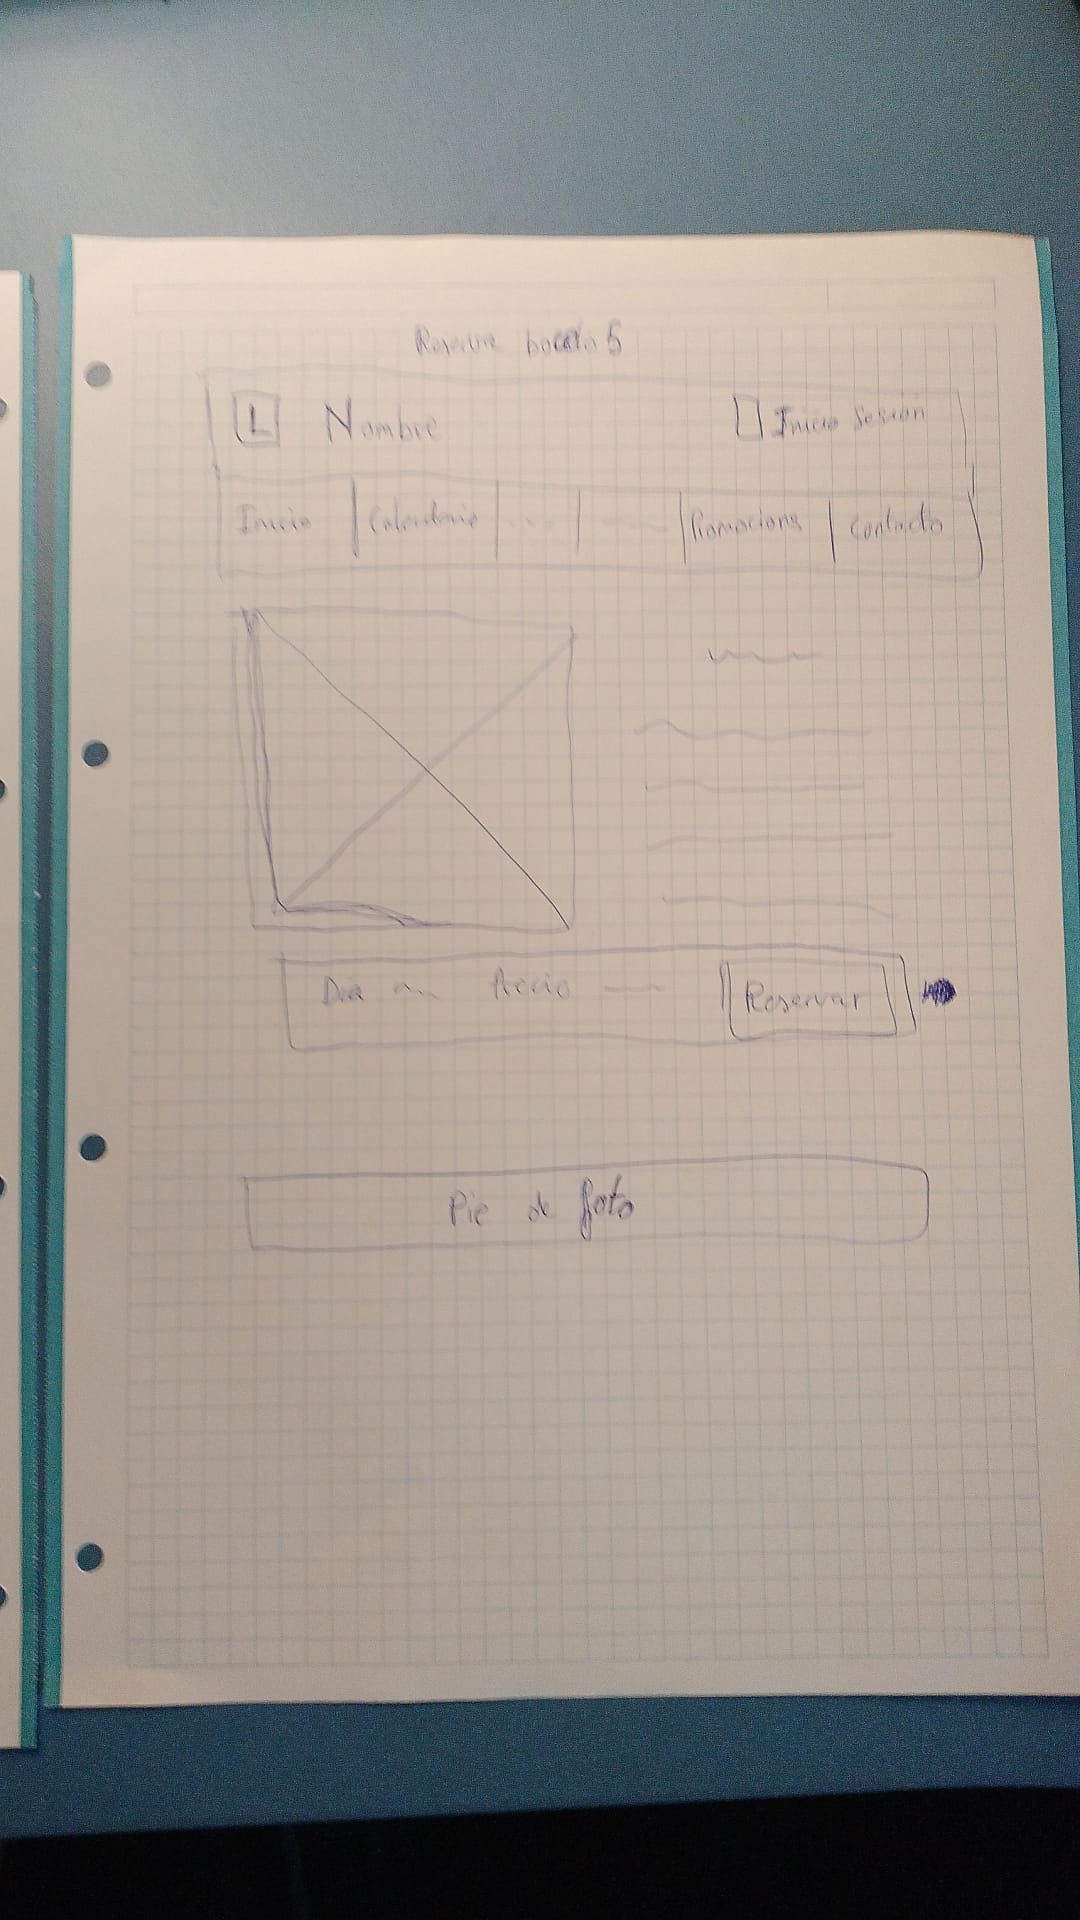 Reserva boceto 5
L Nombre Inicio Sesión
Inicio Calendario ... Promocions Contacto
Dia Precio Reservar
Pie de foto